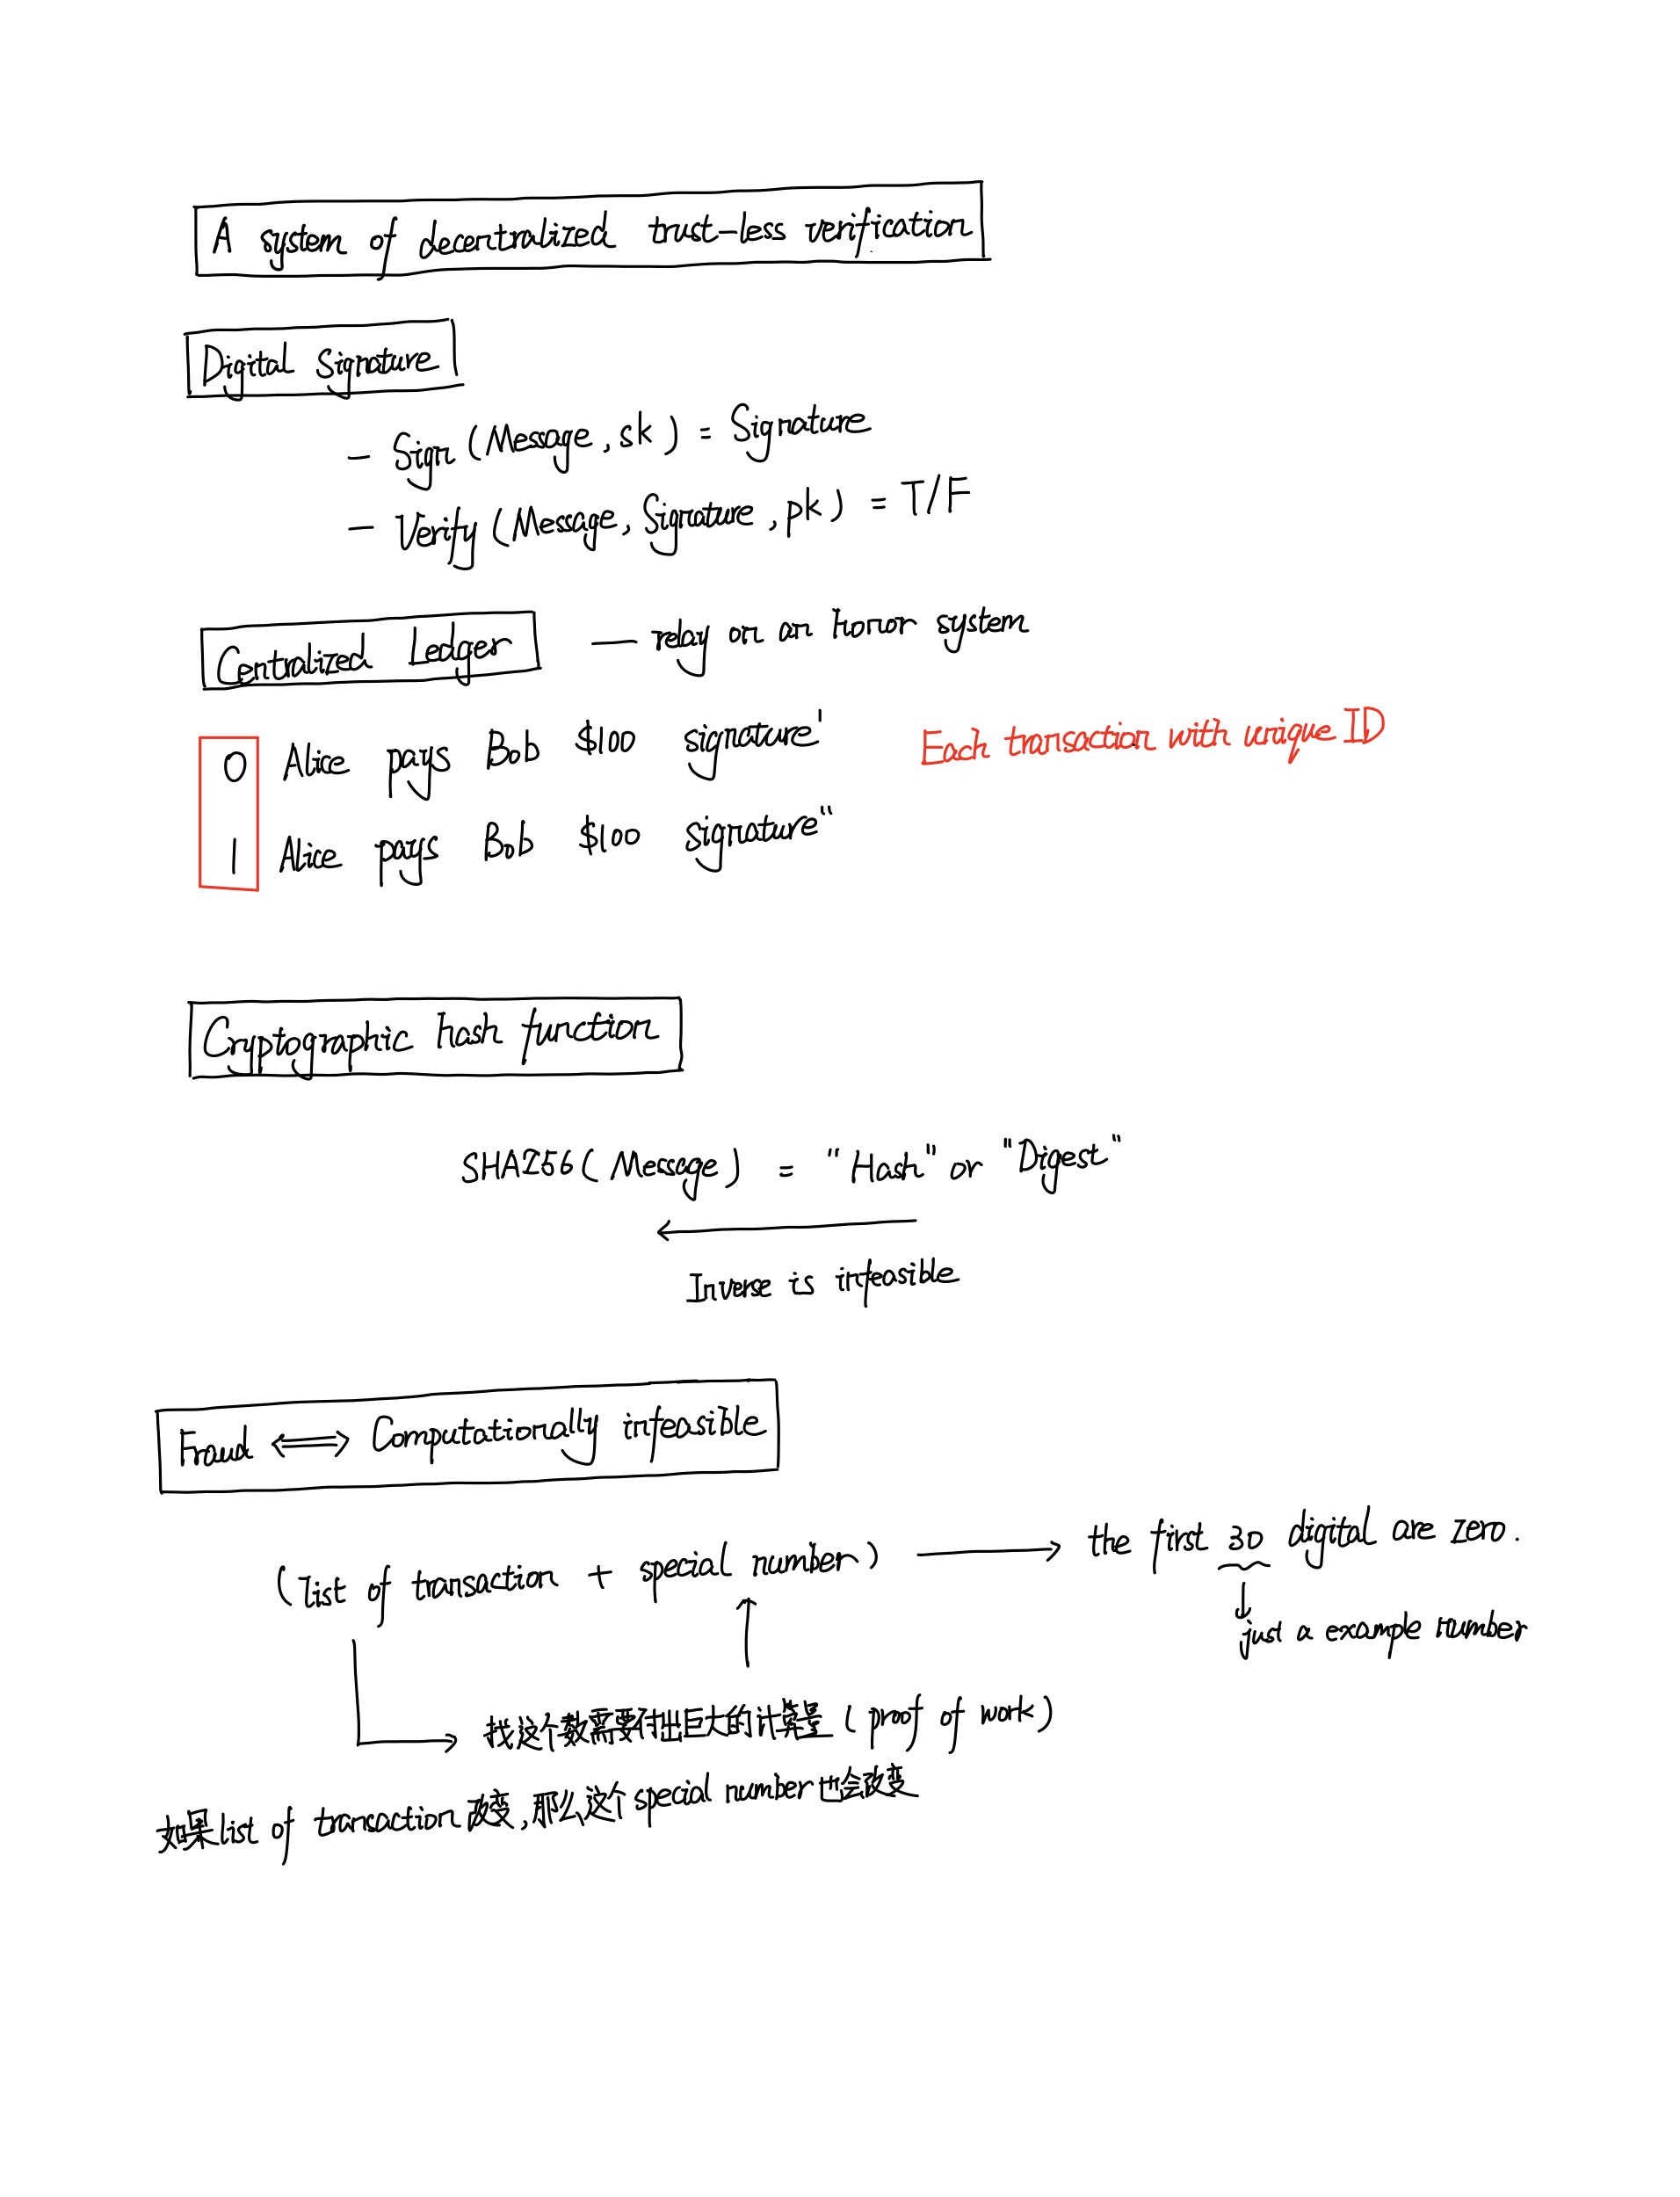 A system of decentralized trust-less verification
Digital Signature
- Sign (Message, sk) = Signature
- Verify (Message, Signature, pk) = T/F
Centralized Ledger — relay on an honor system
0 Alice pays Bob $100 signature'
Each transaction with unique ID
1 Alice pays Bob $100 signature"
Cryptographic hash function
SHA256 (Message) = "Hash" or "Digest"
Inverse is infeasible
Fraud ⟺ Computationally infeasible
(list of transaction + special number) → the first 30 digital are zero.
just a example number
找这个数需要付出巨大的计算量 (proof of work)
如果list of transaction改变,那么这个special number也会改变